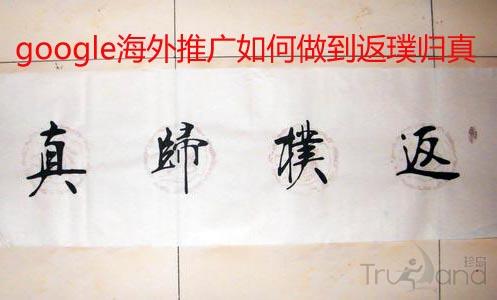 google海外推广如何做到返璞归真
返樸歸真
珍岛
Trueland